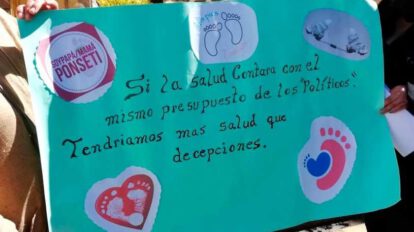 SOY PAPÁ/MAMÁ
PONSETI
Si la salud Contara con el
mismo presupuesto de los "Políticos".
Tendriamos mas salud que
decepciones.